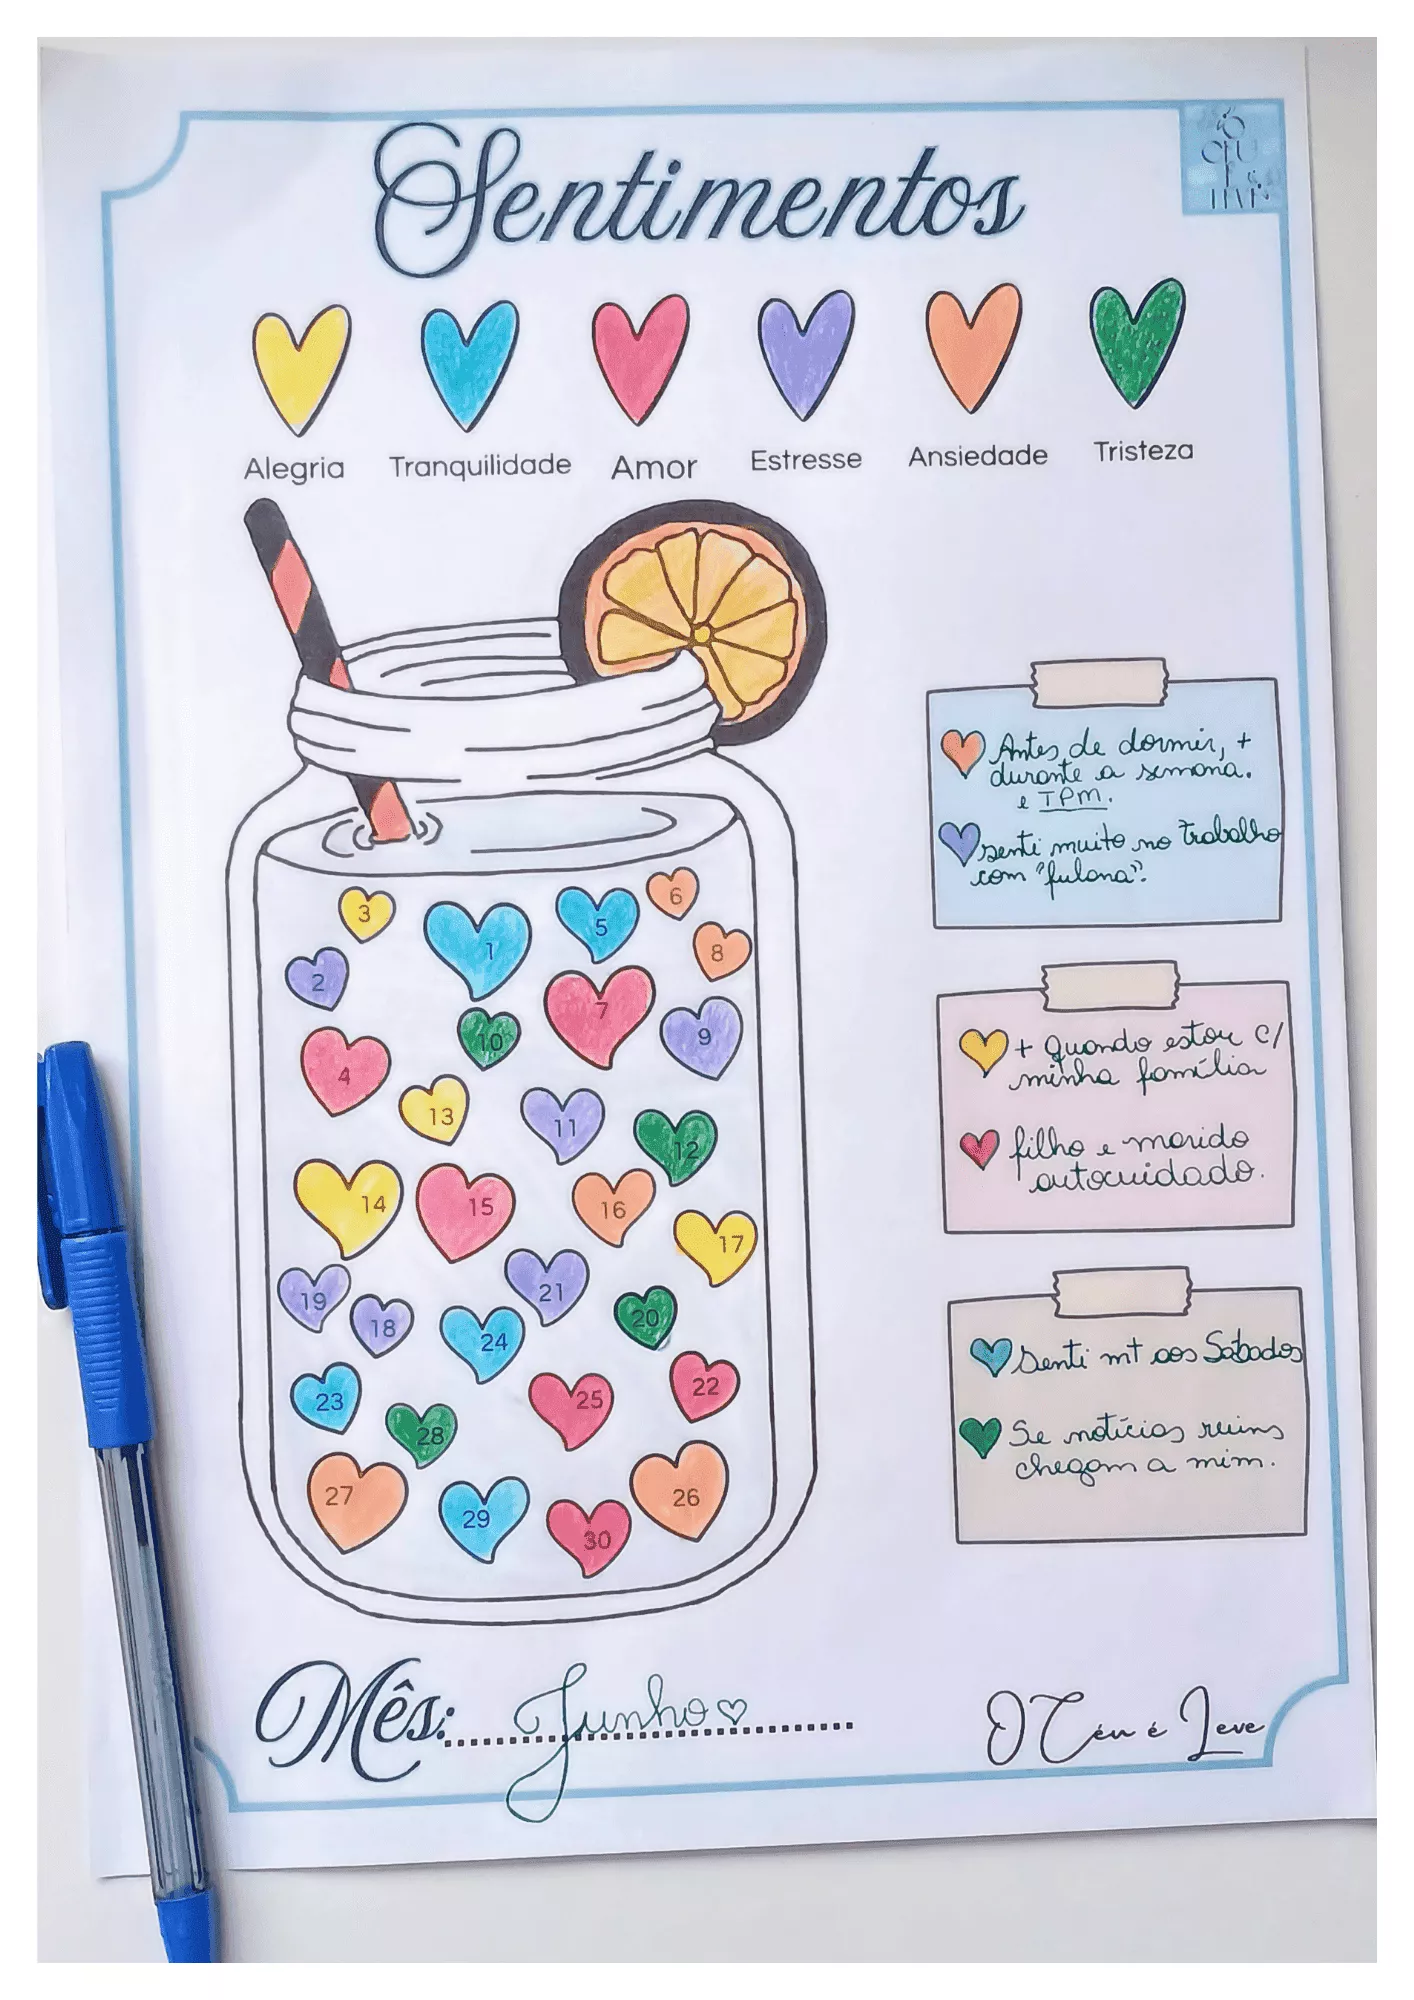 Sentimentos
Alegria Tranquilidade Amor Estresse Ansiedade Tristeza
3
1
5
6
8
2
7
9
10
4
13
11
12
14
15
16
17
19
18
21
20
24
23
25
22
28
27
29
30
26
Antes de dormir, +
durante a semana.
e TPM.
senti muito no trabalho
com "fulana".
+ Quando estou c/
minha família
filho e marido
autocuidado.
Senti mt aos Sabados
Se notícias ruins
chegam a mim.
Mês: Junho
O Céu é Leve